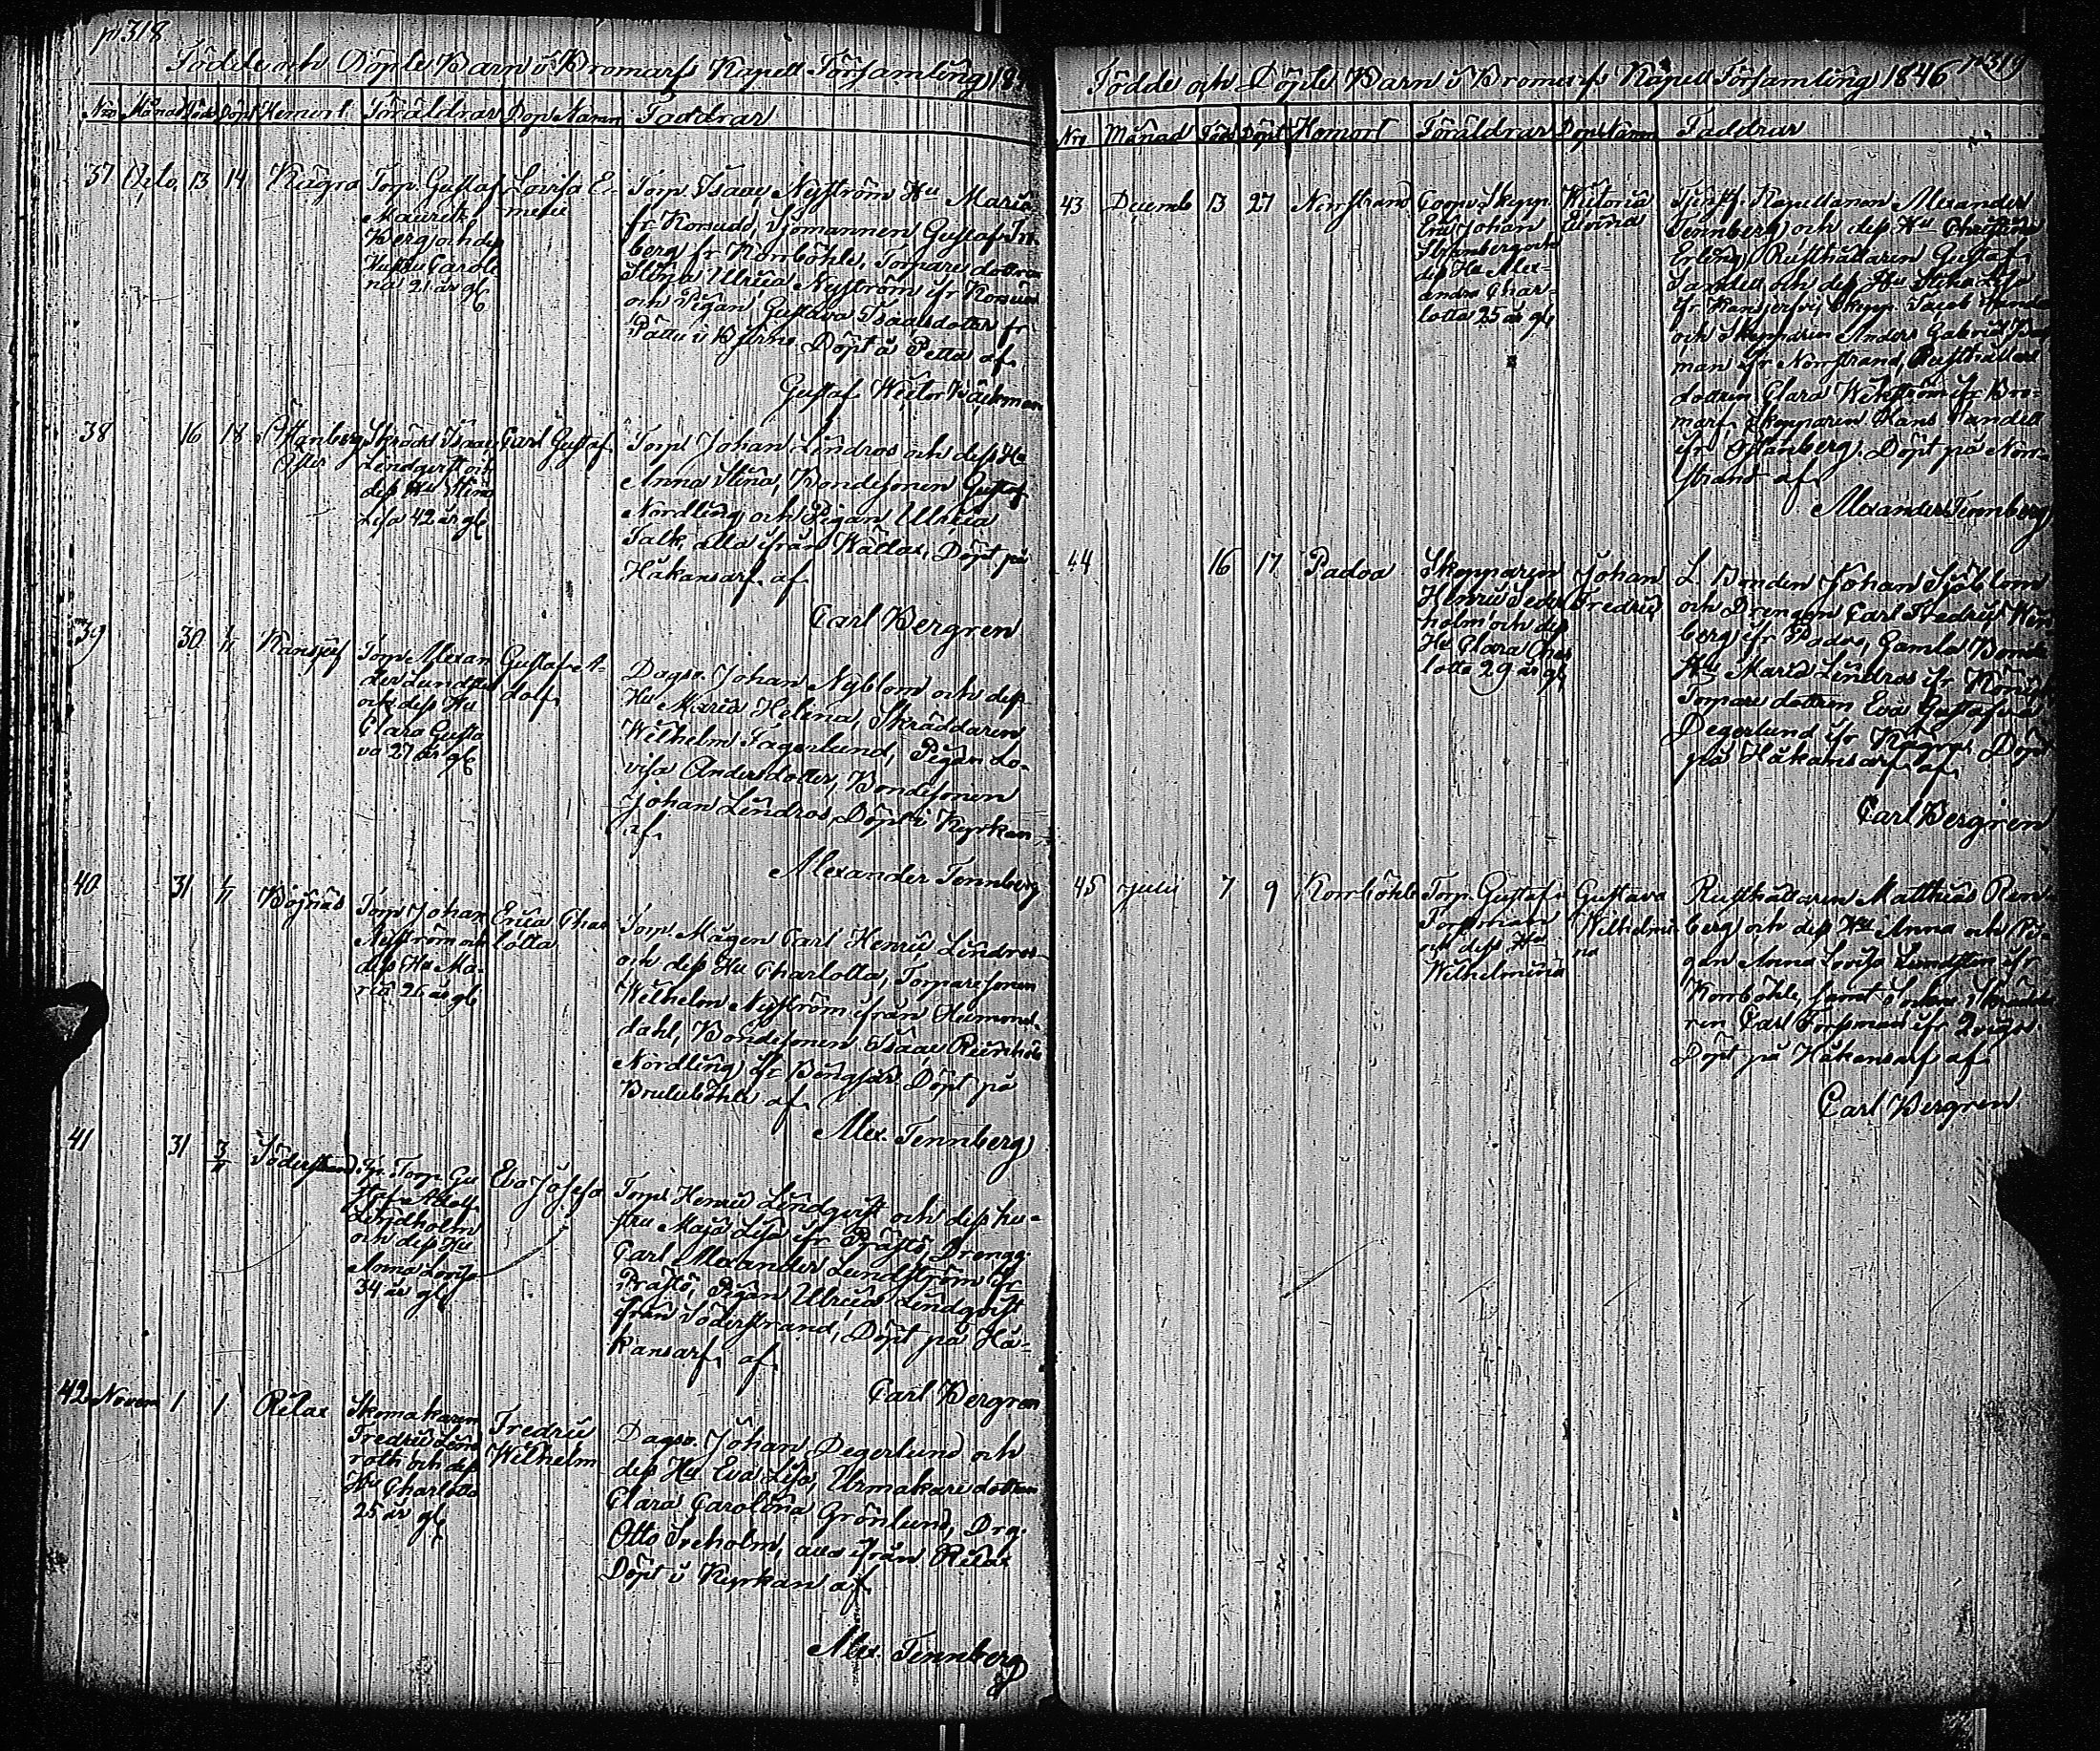 p. 318
Födde och Döpte Barn i Bromarf Kapell Församling 18
Nro Månad Född Döpt Hemort Föräldrar Dop Namn Faddrar
37 Octo. 13 14 Kugra Torp. Gustaf Lovisa E-
Mauritz melie
Berg och dess
Hustru Caroli
na 21 år gl
Torp. Isaac Nyström Hu Maria
fr Korsudd, Sjömannen Gustaf
berg fr Norrböhle, Torpare dottren
Ulrica Nyström ifr
och Pigan Gustava Isaacsdotter fr
i Döpt å af
Gustaf Wictor Bäckman
38 16 18 Östanberg Skrädd Isaac Carl Gustaf
Lindqvist och
dess Hu Stina
Lisa 42 år gl
Torp. Johan Lindros och dess Hu
Anna Stina, Bondesonen Gustaf
Nordling och Pigan Ulrica
Falk, alla ifrån Källas, Döpt på
Håkansarf af
Carl Bergren
39 30 1/11 Torp. Alexan Gustaf A-
der dolf
och dess Hu
Clara Gusta
va 27 år gl
Dagsv. Johan Nyblom och dess
Hu Maria Helena, Skräddaren
Wilhelm Fagerlund, Pigan Lo-
visa Andersdotter, Bondesonen
Johan Lindros, Döpt i Kyrkan
af
Alexander Tennberg
40 31 1/11 Böjnäs Torp Johan Erica Char
Nyström och lotta
dess Hu Ma-
ria 26 år gl
Torp. Mågen Carl Henric Lindros
och dess Hu Charlotta, Torparesonen
Wilhelm Nyström ifrån
dahl, Bondesonen Isaac Reinhold
Nordling ifr Bengsår Döpt på
af
Alex. Tennberg
41 31 3/11 Söderstrand Torp. Gu Eva Josefa
staf Adolf
Lindholm
och dess Hu
Anna Lovisa
34 år gl
Torp. Henric Lindqvist och dess hu-
stru Maja Lisa ifr Prästö, Dreng.
Carl Alexander Lundström ifr
Prästö, Pigan Ulrica Lindqvist
ifrån Söderstrand, Döpt på Hå-
kansarf af
Carl Bergren
42 Novem 1 1 Rilax Skomakaren Fredric
Fredric Lind Wilhelm
roth och dess
Hu Charlotta
25 år gl
Dagsv. Johan Degerlund och
dess Hu Eva Lisa, Urmakare dottren
Clara Carolina Grönlund, Drg.
Otto Treholm, alla ifrån Rilax
Döpt i Kyrkan af
Alex. Tennberg
p. 319
Födde och Döpte Barn i Bromarf Kapell Församling 1846
Nro Månad Född Döpt Hemort Föräldrar Dop Namn Faddrar
43 Decemb 13 27 Norrstrand Coopv. Skepp. Victoria
Eric Johan Elvina
Strömberg och
dess Hu Alex-
andra Char-
lotta 25 år gl
Tjenstf. Kapellanen Alexander
Tennberg och dess Hu Christina
Erling, Rusthållaren Gustaf
Sandell och dess Hu Stina Lisa
Skepp. Jacob
och Skepparen Anders Gabriel
man ifr Norrstrand, Rusthållare
dottren Clara Wikström ifr Bro-
marf Skepparen Hans Sandell
ifr Östanberg. Döpt på Norr-
strand af
Alexander Tennberg
44 16 17 Padva Skepparen Johan
Henric Seder Fredric
holm och dess
Hu Clara Char
lotta 29 år gl
L. Bonden Johan Sjöblom
och Drengen Carl Fredric
berg ifr Padva, Gamla Bonde
Hu Maria Lindros ifr
Torpare dottren Eva Gustafva
Degerlund ifr Kugra. Döpt
på Håkansarf af
Carl Bergren
45 Juli 7 9 Norrböhle Torp. Gustaf Gustava
Forssman Wilhelmi
och dess Hu na
Wilhelmina
Rusthållaren Matthias Ren
berg och dess Hu Anna och Pi-
gan Anna Lovisa Lundsten ifr
Norrböhle, samt Socken Skrädda
ren Carl Forssman ifr
Döpt på Håkansarf af
Carl Bergren